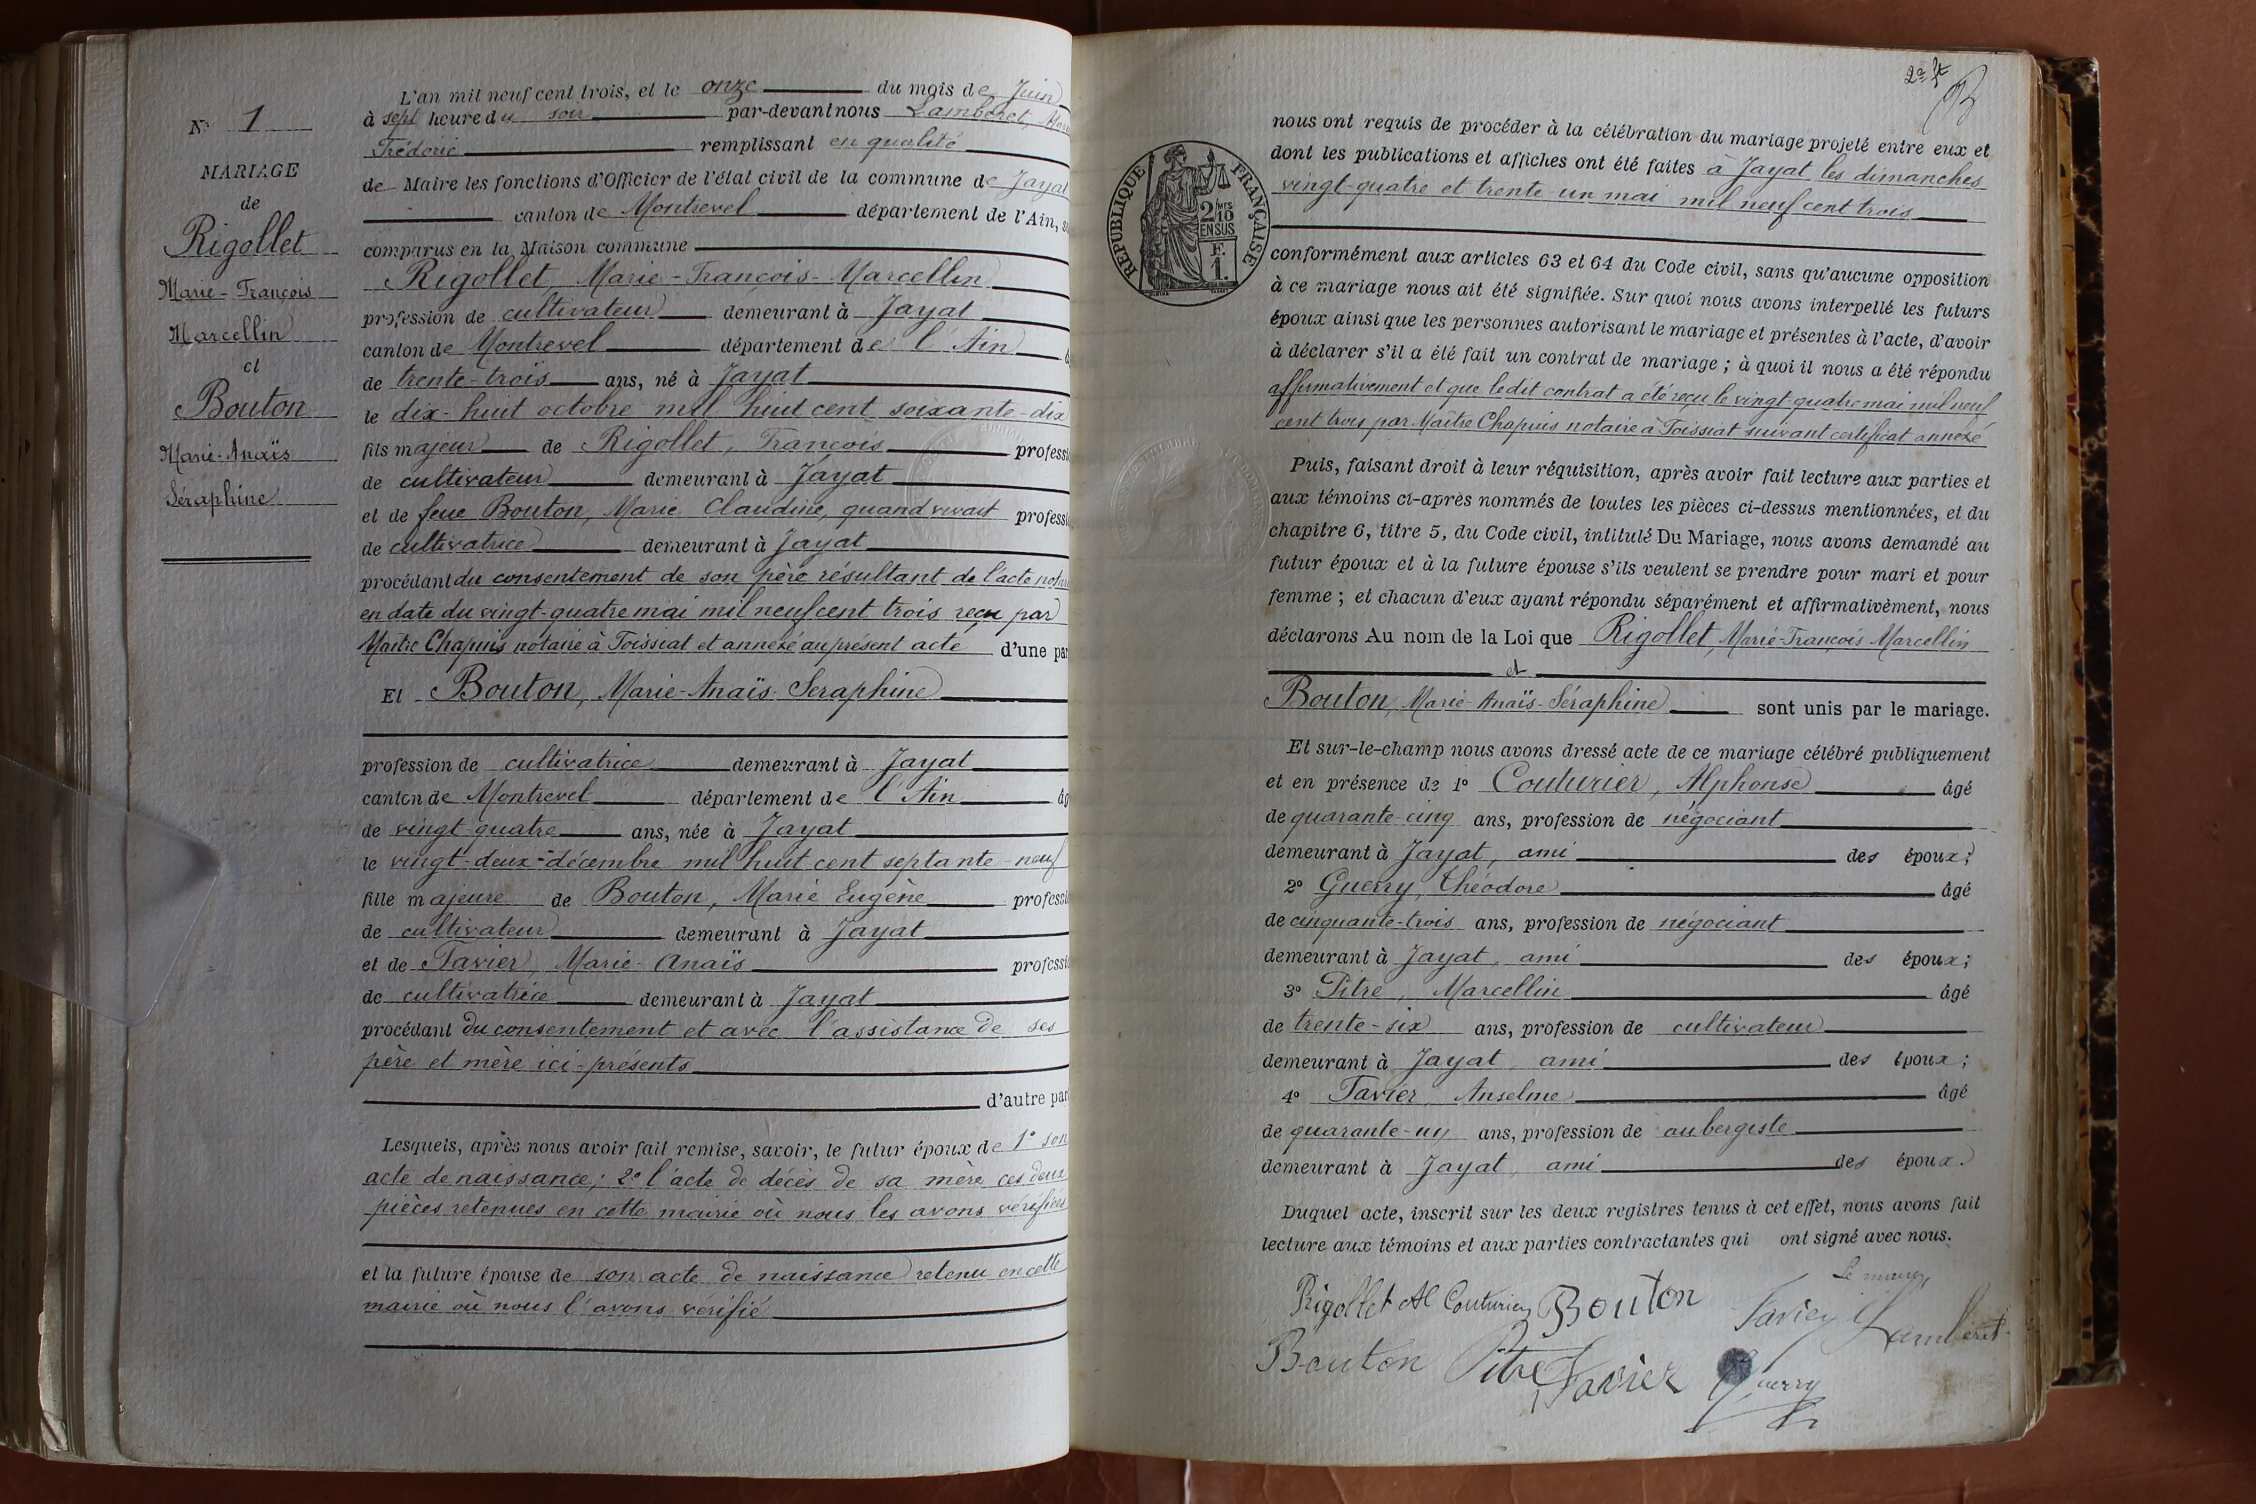 N° 1
MARIAGE
de
Rigollet
Marie-François
Marcellin
et
Bouton
Marie-Anaïs
Séraphine
L'an mil neuf cent trois, et le onze du mois de Juin
à sept heure du soir par-devant nous Lamberet,
Frédéric remplissant en qualité
de Maire les fonctions d'Officier de l'état civil de la commune de Jayat
canton de Montrevel département de l'Ain,
comparus en la Maison commune
Rigollet, Marie-François-Marcellin
profession de cultivateur demeurant à Jayat
canton de Montrevel département de l'Ain
de trente-trois ans, né à Jayat
le dix-huit octobre mil huit cent soixante-dix
fils majeur de Rigollet, François professi
de cultivateur demeurant à Jayat
et de feue Bouton, Marie Claudine, quand vivait professi
de cultivatrice demeurant à Jayat
procédant du consentement de son père résultant de l'acte
en date du vingt-quatre mai mil neuf cent trois reçu par
Maître Chapuis notaire à Foissiat et annexé au présent acte d'une par
Et Bouton, Marie-Anaïs-Seraphine
profession de cultivatrice demeurant à Jayat
canton de Montrevel département de l'Ain âg
de vingt-quatre ans, née à Jayat
le vingt-deux-décembre mil huit cent septante-neuf
fille majeure de Bouton, Marie Eugène professi
de cultivateur demeurant à Jayat
et de Favier, Marie-Anaïs professi
de cultivatrice demeurant à Jayat
procédant du consentement et avec l'assistance de ses
père et mère ici-présents
d'autre par
Lesquels, après nous avoir fait remise, savoir, le futur époux de 1° son
acte de naissance; 2° l'acte de décès de sa mère ces deux
pièces retenues en cette mairie où nous les avons vérifiées
et la future épouse de son acte de naissance retenu en cette
mairie où nous l'avons vérifié
RÉPUBLIQUE FRANÇAISE
2 MES
10
EN SUS
F.
1.
nous ont requis de procéder à la célébration du mariage projeté entre eux et
dont les publications et affiches ont été faites à Jayat les dimanches
vingt-quatre et trente-un mai mil neuf cent trois
conformément aux articles 63 et 64 du Code civil, sans qu'aucune opposition
à ce mariage nous ait été signifiée. Sur quoi nous avons interpellé les futurs
époux ainsi que les personnes autorisant le mariage et présentes à l'acte, d'avoir
à déclarer s'il a été fait un contrat de mariage ; à quoi il nous a été répondu
affirmativement et que ledit contrat a été reçu le vingt quatre mai mil neuf
cent trois par Maître Chapuis notaire à Foissiat suivant certificat annexé
Puis, faisant droit à leur réquisition, après avoir fait lecture aux parties et
aux témoins ci-après nommés de toutes les pièces ci-dessus mentionnées, et du
chapitre 6, titre 5, du Code civil, intitulé Du Mariage, nous avons demandé au
futur époux et à la future épouse s'ils veulent se prendre pour mari et pour
femme ; et chacun d'eux ayant répondu séparément et affirmativement, nous
déclarons Au nom de la Loi que Rigollet, Marie-François Marcellin
et
Bouton, Marie-Anaïs-Séraphine sont unis par le mariage.
Et sur-le-champ nous avons dressé acte de ce mariage célébré publiquement
et en présence de 1° Couturier, Alphonse âgé
de quarante-cinq ans, profession de négociant
demeurant à Jayat, ami des époux;
2° Guerry, Théodore âgé
de cinquante-trois ans, profession de négociant
demeurant à Jayat, ami des époux;
3° Pitre, Marcellin âgé
de trente-six ans, profession de cultivateur
demeurant à Jayat, ami des époux;
4° Favier, Anselme âgé
de quarante-un ans, profession de aubergiste
demeurant à Jayat, ami des époux.
Duquel acte, inscrit sur les deux registres tenus à cet effet, nous avons fait
lecture aux témoins et aux parties contractantes qui ont signé avec nous.
Le maire
Rigollet Al Couturier Bouton Favier Lamberet
Bouton Pitre Favier Guerry